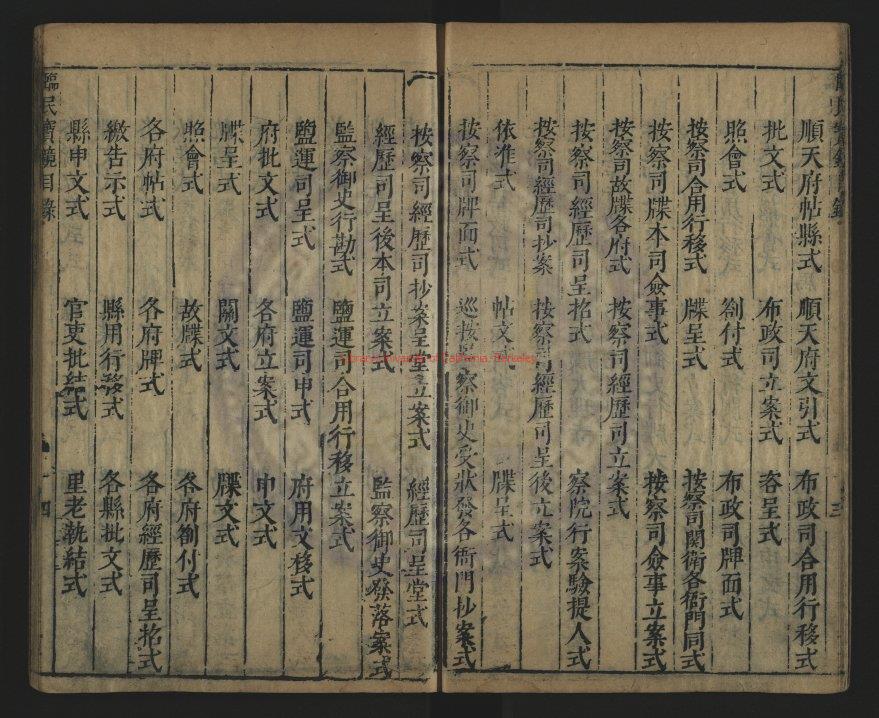 順天府帖縣式　順天府文引式　布政司合用行移式
批文式　布政司立案式　咨呈式
照會式　劄付式　布政司牌面式
按察司合用行移式　牒呈式　按察司関衛各衙門同式
按察司牒本司僉事式　按察司僉事立案式
按察司故牒各府式　按察司經歷司立案式
按察司經歷司呈招式　察院行案驗提人式
按察司經歷司抄案　按察司經歷司呈後立案式
依准式　帖文式　牒呈式
按察司牌面式　巡按監察御史受狀發各衙門抄案式
按察司經歷司抄案呈堂立案式　經歷司呈堂式
經歷司呈後本司立案式　監察御史發落案式
監察御史行勘式　鹽運司合用行移立案式
鹽運司呈式　鹽運司申式　府用文移式
府批文式　各府立案式　申文式
牒呈式　關文式　牒文式
照會式　故牒式　各府劄付式
各府帖式　各府牌式　各府經歷司呈招式
繳告示式　縣用行移式　各縣批文式
縣申文式　官吏批結式　里老執結式
臨民寶鏡目錄
十四
Library, University of California, Berkeley